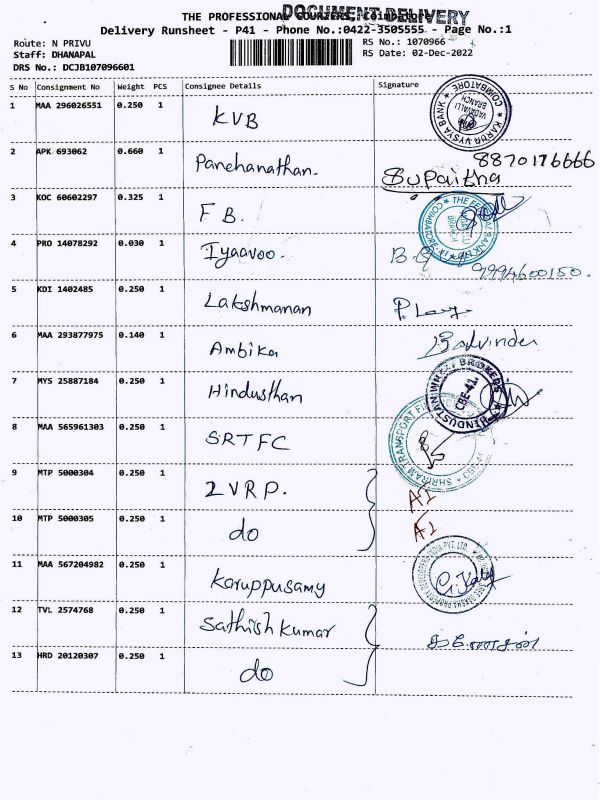 THE PROFESSIONAL COURIERS, Coimbatore
DOCUMENT DELIVERY
Delivery Runsheet - P41 - Phone No.:0422-3505555 - Page No.:1
Route: N PRIVU
RS No.: 1070966
Staff: DHANAPAL
RS Date: 02-Dec-2022
DRS No.: DCJB107096601
S No Consignment No Weight PCS Consignee Details Signature
1 MAA 296026551 0.250 1 KVB
KARUR VYSYA BANK COIMBATORE VADAVALLI BRANCH
2 APK 693062 0.660 1 Panchanathan. 8870176666
Supaitha
3 KOC 60602297 0.325 1 F B.
THE FEDERAL BANK
4 PRO 14078292 0.030 1 Iyaavoo. 9994600150.
5 KDI 1402485 0.250 1 Lakshmanan
6 MAA 293877975 0.140 1 Ambika
7 MYS 25887184 0.250 1 Hindusthan
HINDUSTAN BROKERS CBE-41
8 MAA 565961303 0.250 1 SRTFC
SHRIRAM TRANSPORT
9 MTP 5000304 0.250 1 LVRP. A1
10 MTP 5000305 0.250 1 do A1
11 MAA 567204982 0.250 1 Karuppusamy
INDIA PVT. LTD.
12 TVL 2574768 0.250 1 Sathish kumar கணேசன்
13 HRD 20120307 0.250 1 do